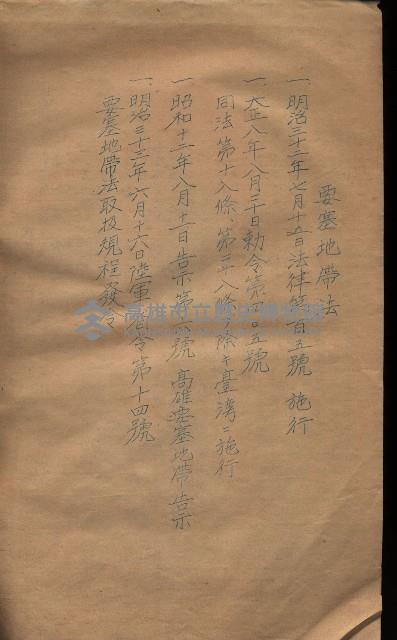 要塞地帶法
一、明治三十二年七月十五日法律第百五號 施行
一、大正八年八月三十日勅令第四〇五號
同法第十八條、第三十八條ヲ除キ臺灣ニ施行
一 昭和十二年八月十一日告示第 號 高雄要塞地帶告示
一、明治三十三年六月十六日陸軍省令第十四號
要塞地帶法取扱規程發令
高雄市立歷史博物館